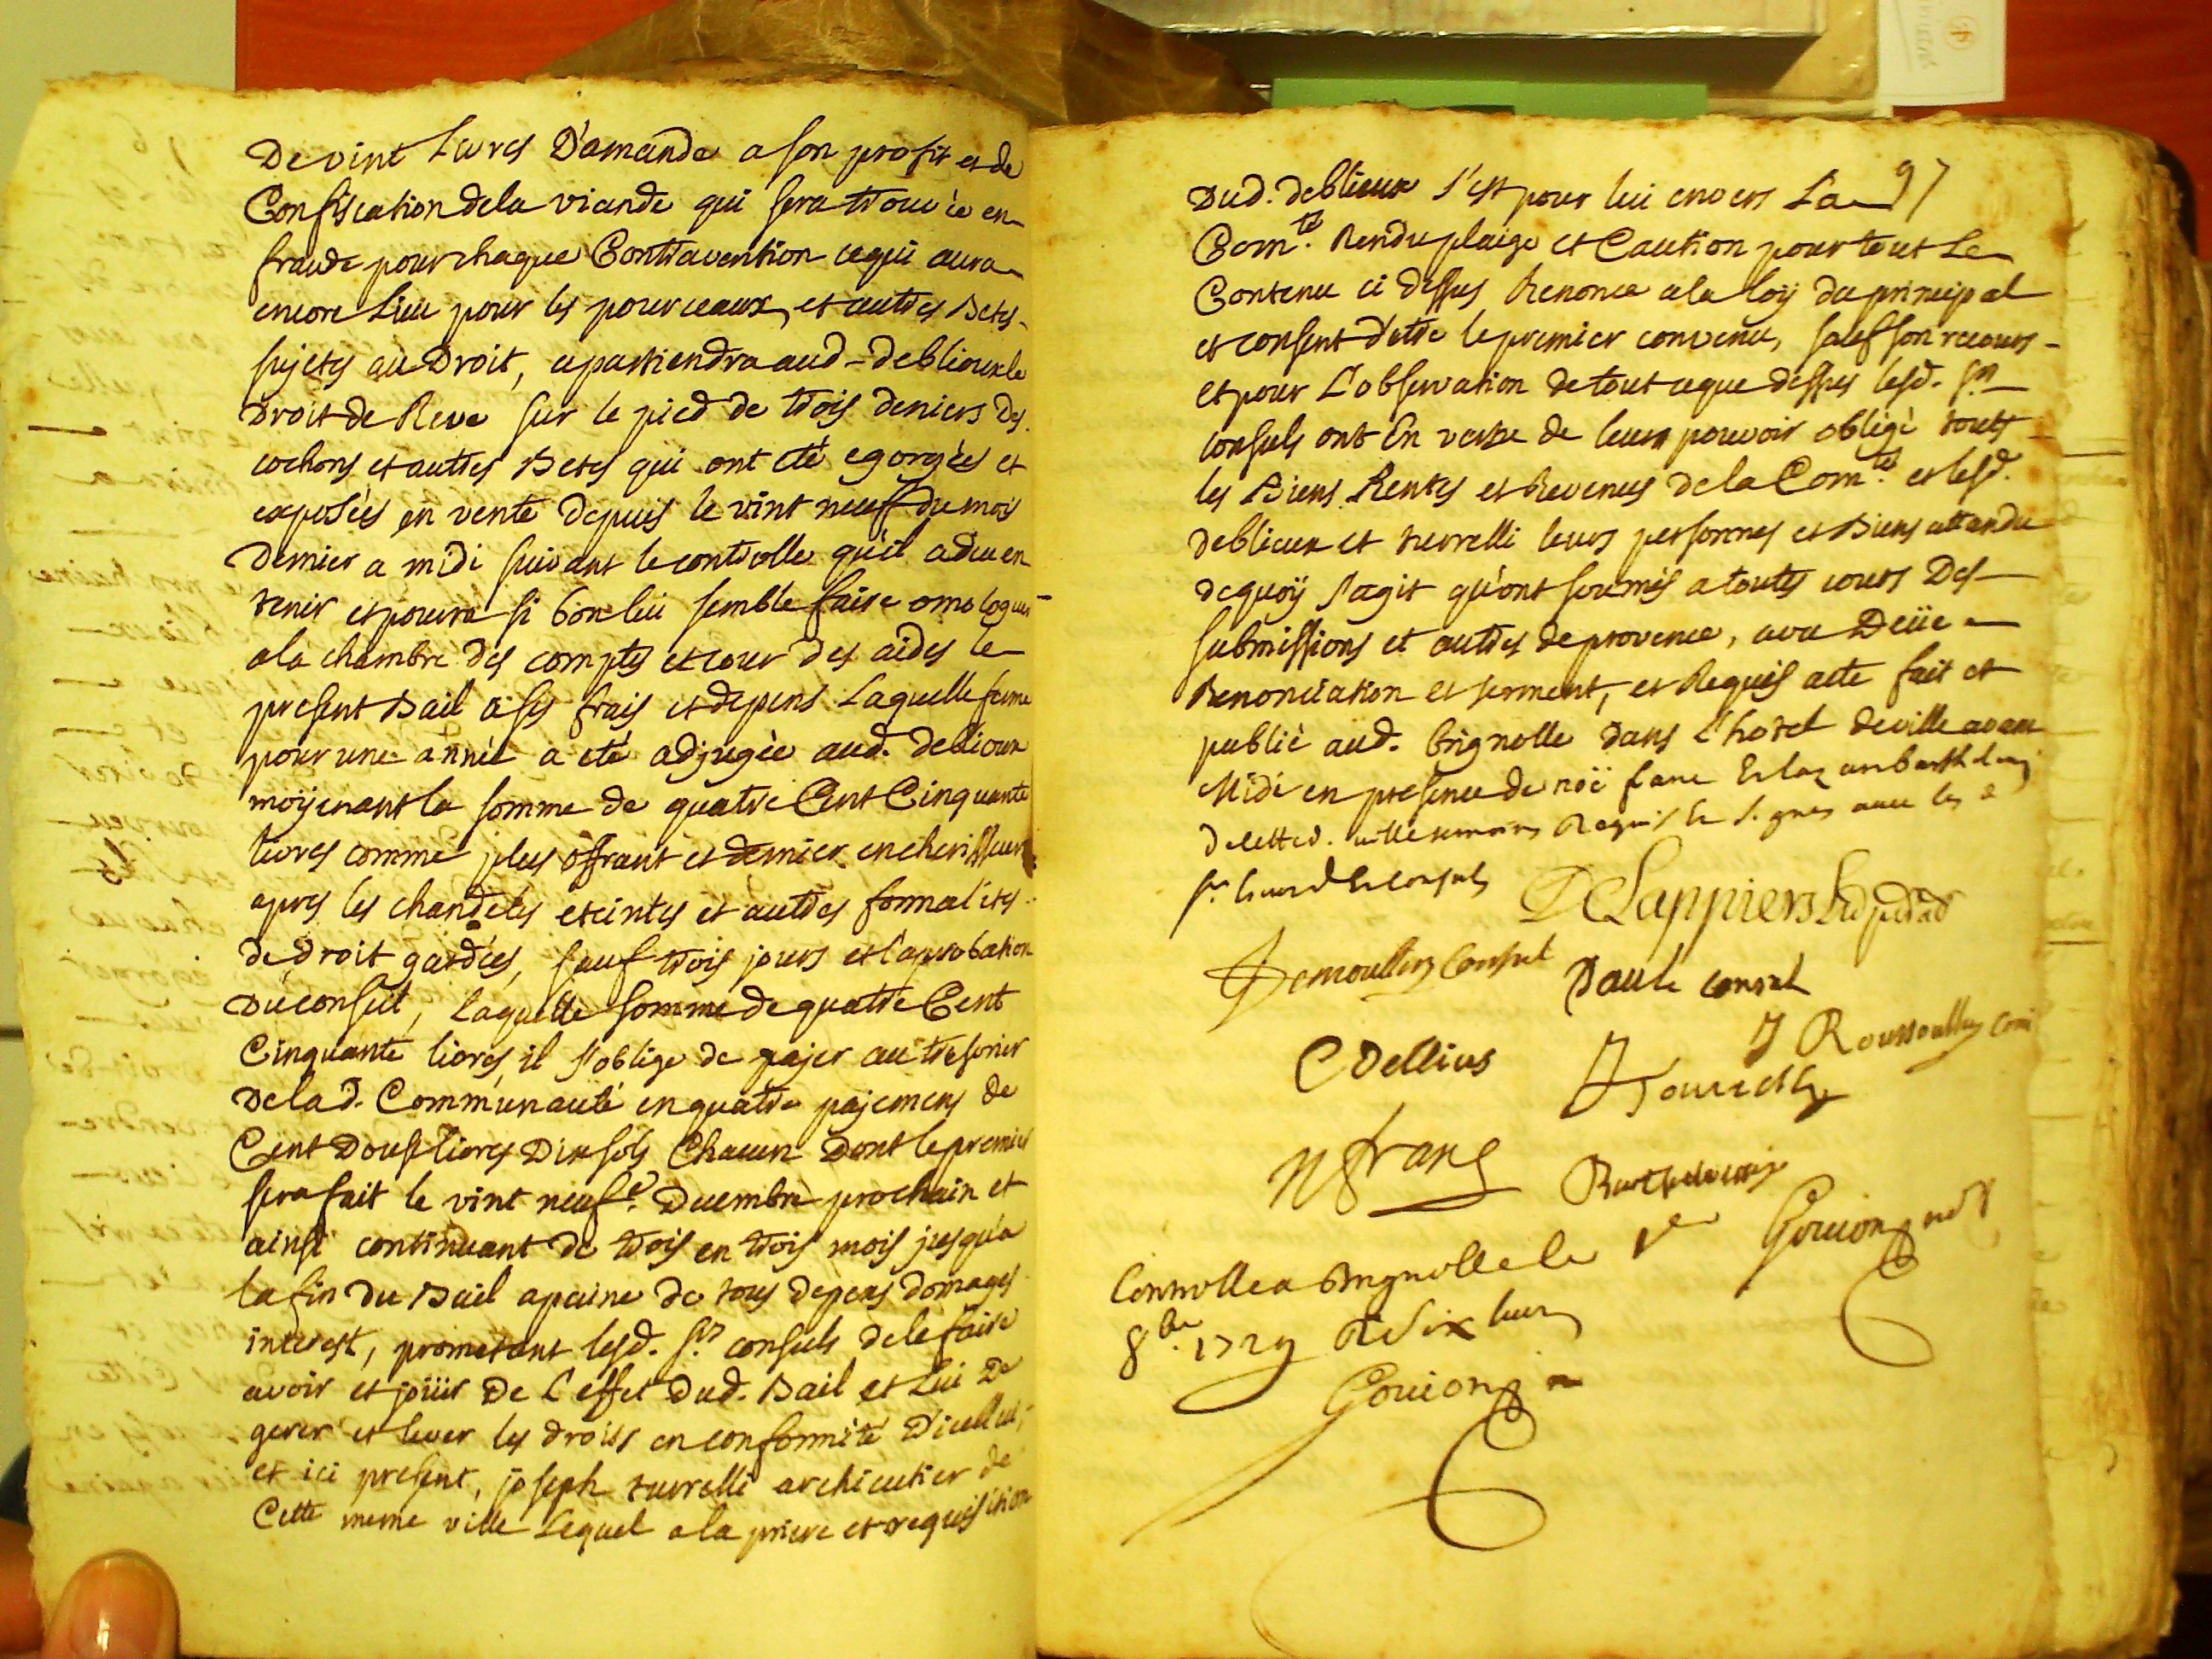 De vint Livres D'amande a son profit et de
Confiscation dela viande qui sera trouvée en
fraude pour chaque Contravention ce qui aura
encore Lieu pour les pourceaux, et autres Betes
sujets au Droit, apartiendra aud. deblieux le
Droit de Reve sur le pied de trois deniers des
cochons et autres Betes qui ont eté egorgées et
exposées en vente depuis le vint neuf du mois
dernier a midi suivant le controlle qu'il a du en
tenir et pourra si bon lui semble faire omologuer
a la chambre des comptes et cour des aides le
present Bail a ses frais et depens Laquelle ferme
pour une année a eté adjugée aud. deblieux
moÿenant la somme de quatre Cent Cinquante
livres comme plus offrant et dernier encherisseur
apres les chandeles eteintes et autres formalités
de droit gardées, sauf trois jours et l'aprobation
du conseil, Laquelle somme de quatre Cent
Cinquante livres, il s'oblige de pajer au tresorier
dela d. Communauté en quatre pajemens de
Cent Douse livres Dix sols Chacun Dont le premier
sera fait le vint neuf.e Decembre prochain et
ainsi continuant de trois en trois mois jusqu'a
la fin du Bail a peine de tous depens domages
interest, prometant lesd. srs consuls de le faire
avoir et joüir de L'effet dud. Bail et Lui De
gerer et lever les droits en conformité D'icellui,
et ici present, joseph turrelli archicutier de
Cette meme ville Lequel a la priere et requisition
97
Dud. deblieux s'est pour lui envers La
Com.té Rendu plaige et Caution pour tout Le
Contenu ci dessus Renonce a la loÿ du principal
et consent d'etre le premier convenu, sauf son recours
et pour L'observation de tout ce que dessus lesd. srs
consuls ont En vertu de leur pouvoir obligé touts
les Biens Rentes et Revenus de la Com.té et lesd.
deblieux et turrelli leurs personnes et Biens attandu
de quoÿ s'agit qu'ont soumis a toutes cours Des
submissions et autres de provence, avec Deüe
Renonciation et serment, et Requis acte fait et
publié aud. brignolle dans L'hotel de ville avant
Midi en presence de noë franc Et
de cette d. ville temoins Requis Et Signes avec les
srs Et Consuls
consul
Daule consul
C Dellius
N franc
Barthelemy
Gouion not
Controlle a Brignolle le
8bre 1729 R six
Gouion